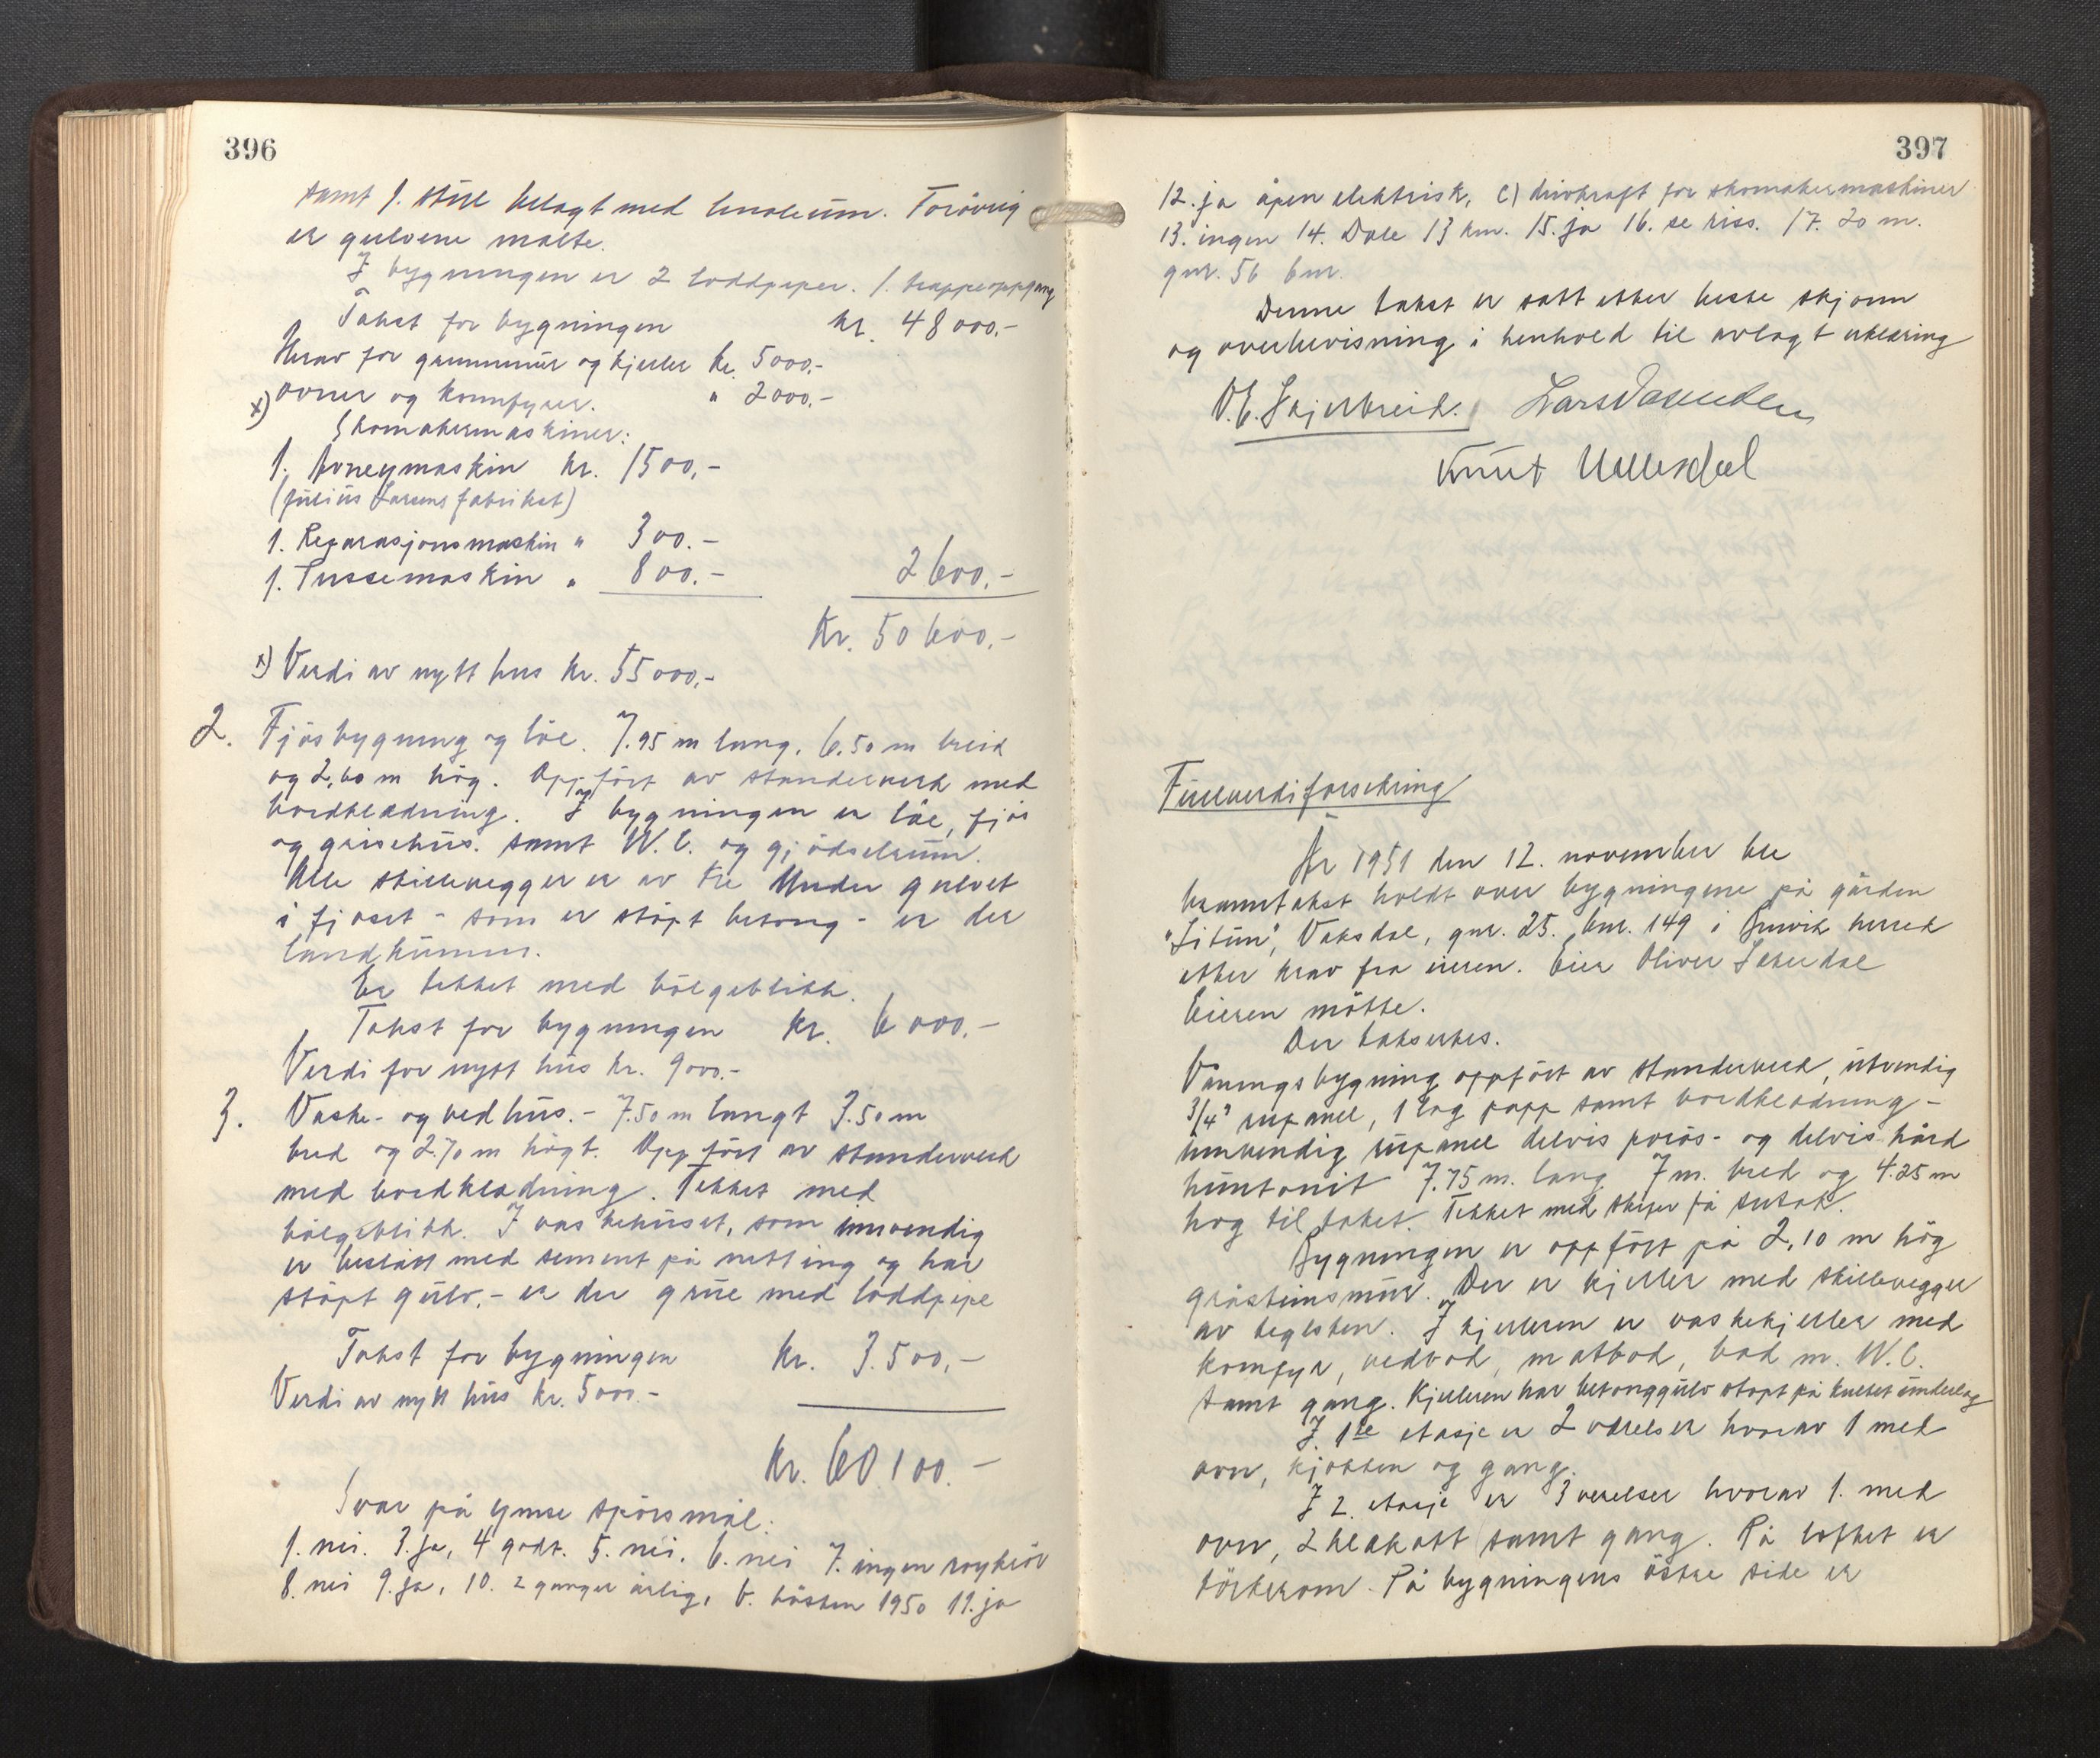 396
samt 1. stue belagt med linoleum. Forøvrig
er gulvene malte.
I bygningen er 2 loddpiper. 1. trappeoppgang
Takst for bygningen kr. 48 000.-
Herav for grunnmur og kjeller kr. 5000.-
x) ovner og komfyrer. " 2000.-
Skomakermaskiner:
1. kr. 1500,-
(Julius Larsens fabrikat)
1. Reparasjonsmaskin " 300.-
1. Pussemaskin " 800.- 2600.-
Kr. 50 600.-
x) Verdi av nytt hus kr. 55 000,-
2. Fjøsbygning og løe. 7.95 m lang, 6.50 m breid
og 2,60 m høg. Oppført av standerverk med
bordkledning. I bygningen er løe, fjøs
og grisehus. samt W.C. og gjødselrum.
Alle skillevegger er av tre Under gulvet
i fjøset - som er støpt betong - er der
landkummer.
Er tekket med bølgeblikk.
Takst for bygningen kr. 6 000.-
Verdi for nytt hus kr. 9000.-
3. Vaske- og vedhus. - 7.50 m langt 3.50 m
bred og 2.70 m høgt. Oppført av standerverk
med bordkledning. Tekket med
bølgeblikk. I vaskehuset, som innvendig
er beslått med sement på netting og har
støpt gulv, - er der grue med loddpipe
Takst for bygningen kr. 3.500,-
Verdi av nytt hus kr. 5000.-
Kr. 60 100.-
Svar på ymse spørsmål:
1. nei. 3. ja, 4 godt. 5. nei. 6. nei 7. ingen røykrør
8. nei 9. ja, 10. 2 ganger årlig, b. høsten 1950 11. ja
397
12. ja åpen elektrisk, c) drivkraft for skomakermaskiner
13. ingen 14. Dale 13 km. 15. ja 16. se riss. 17. 20 m.
gnr. 56 bnr.
Denne takst er satt etter beste skjønn
og overbevisning i henhold til avlagt erklæring
O.E. Skjerbreid. Lars
Knut
Fullverdiforsikring
År 1951 den 12. november ble
branntakst holdt over bygningene på gården
"Litun", Vaksdal, gnr. 25. bnr. 149 i Bruvik herred
etter krav fra eieren. Eier Oliver
Eieren møtte.
Der takseres.
Våningsbygning oppført av standerverk, utvendig
3/4" rupanel, 1 lag papp samt bordkledning -
innvendig rupanel delvis porøs- og delvis hård
huntonit 7.75 m. lang 7 m. bred og 4.25 m
høg til taket. Tekket med skifer på sutak.
Bygningen er oppført på 2,10 m høg
gråsteinsmur. Der er kjeller med skillevegger
av teglsten. I kjelleren er vaskekjeller med
komfyr, vedbod, matbod, bad m. W.C.
samt gang. Kjelleren har betonggulv støpt på kultet underlag
I 1ste etasje er 2 værelser hvorav 1 med
ovn, kjøkken og gang.
I 2. etasje er 3 værelser hvorav 1. med
ovn, 2 kleskott samt gang. På loftet er
tørkerom. På bygningens østre side er